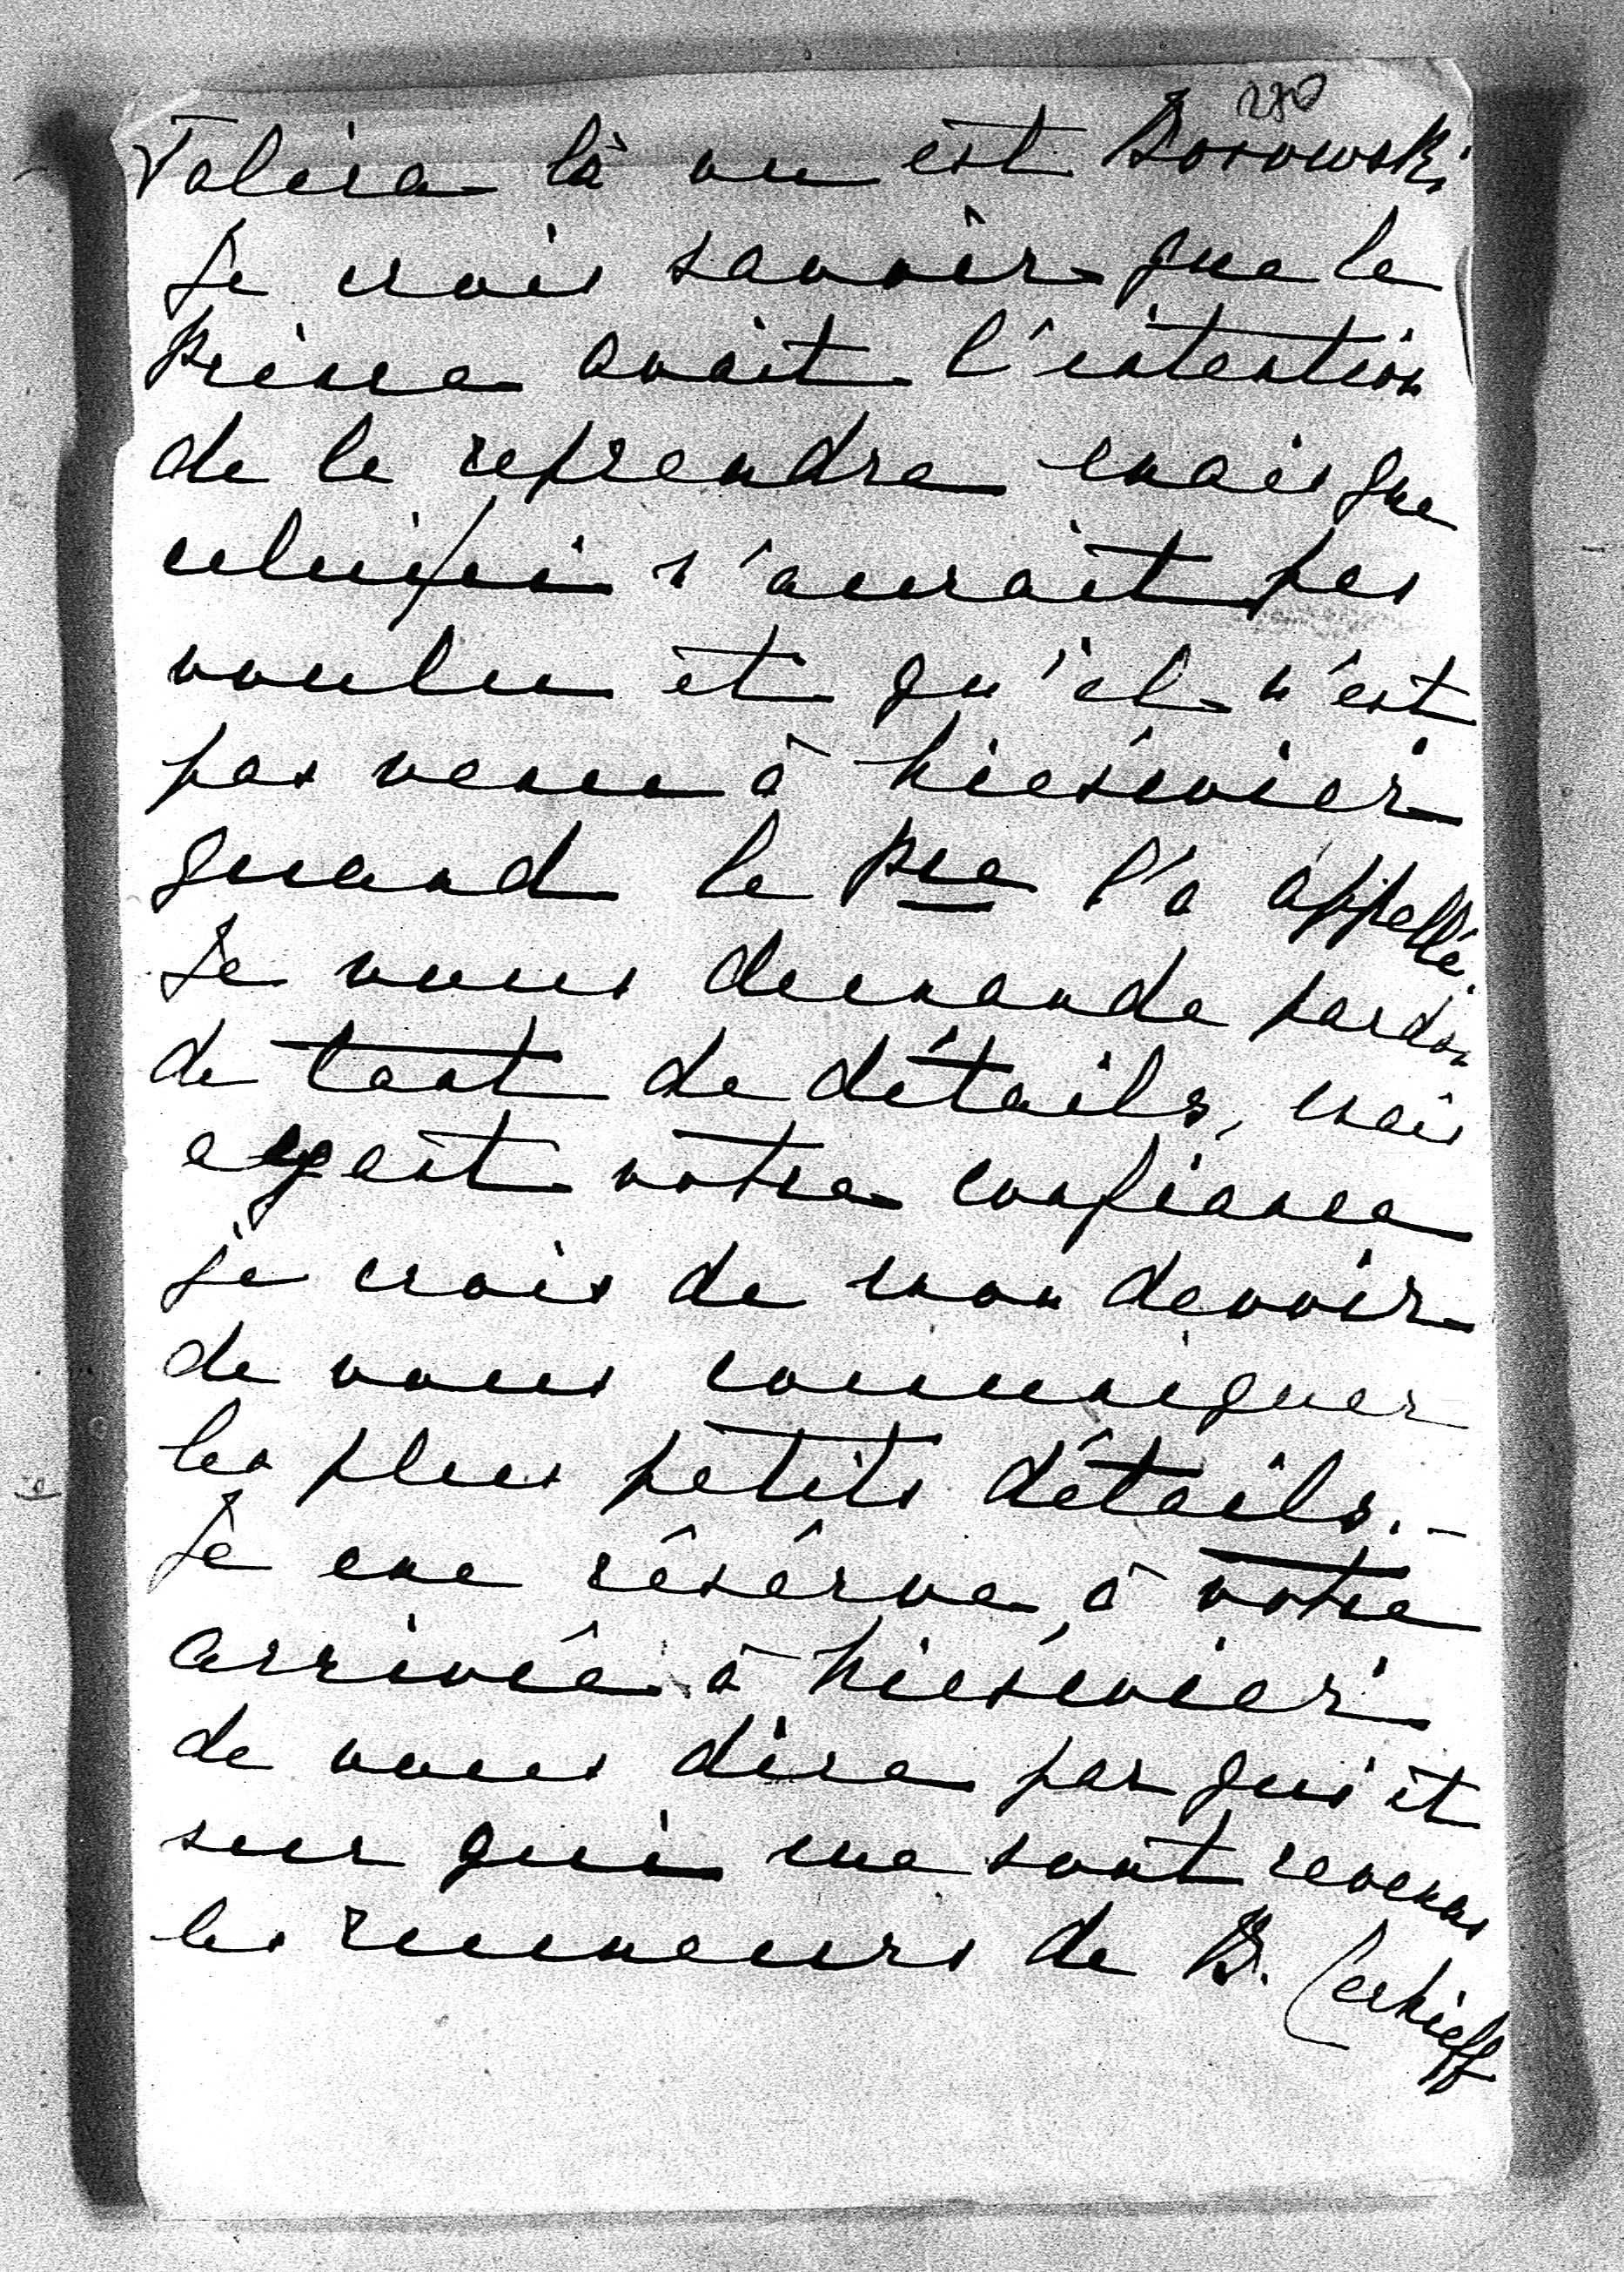 280
là ou est Borowski
Je crois savoir que le
Prince avait l'intention
de le reprendre mais que
celui ci n'aurait pas
voulu et qu'il n'est
pas venu à Niéswier
quand le Pce l'a appellé.
Je vous demande pardon
de tant de détails, mais
ayant votre confiance
je crois de mon devoir
de vous communiquer
les plus petits détails. –
Je me réserve, à votre
arrivée à Niéswier
de vous dire par qui et
sur qui me sont revenus
les rumeurs de B.